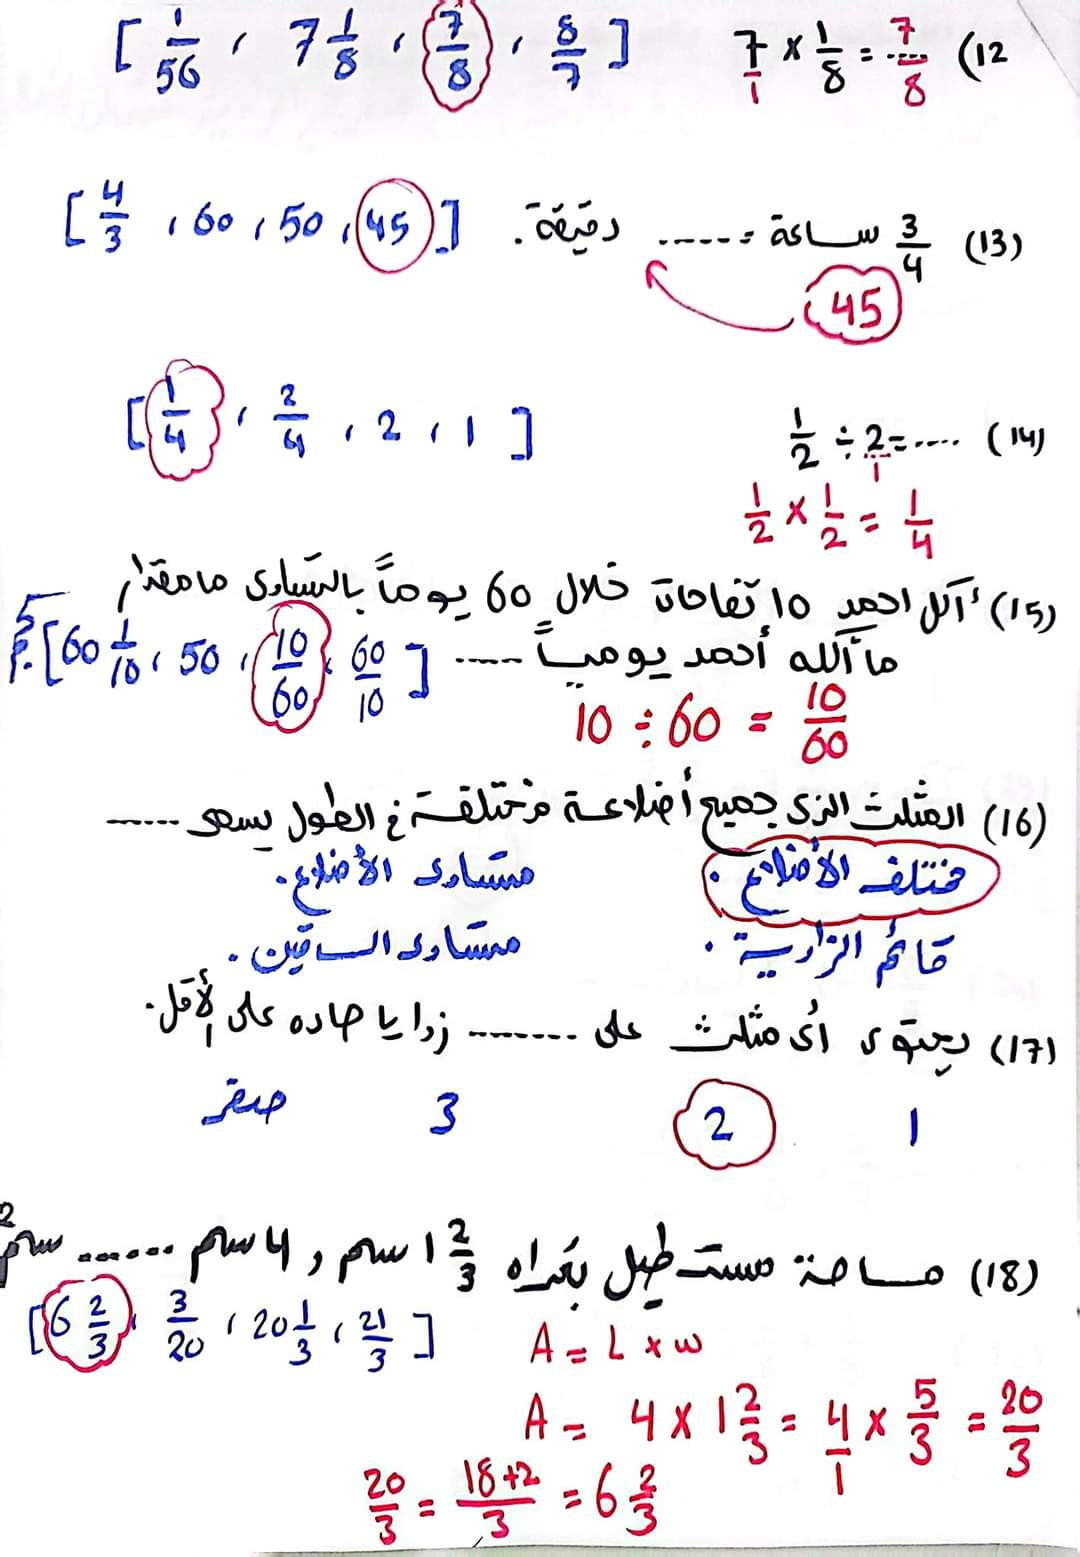 12) 7/1 × 1/8 = 7/8 [ 1/56 ، 7 1/8 ، 7/8 ، 8/7 ]
(13) 3/4 ساعة = ...... دقيقة. [ 4/3 ، 60 ، 50 ، 45 ]
45
(14) 1/2 ÷ 2/1 = .... [ 1/4 ، 2/4 ، 2 ، 1 ]
1/2 × 1/2 = 1/4
(15) أكل احمد 10 تفاحات خلال 60 يوماً بالتساوى ما مقدار
ما أكله أحمد يومياً ..... [ 60 1/10 ، 50 ، 10/60 ، 60/10 ]
10 ÷ 60 = 10/60
(16) المثلث الذى جميع أضلاعة مختلفة فى الطول يسمى ......
مختلف الأضلاع . متساوى الأضلاع .
قائم الزاوية . متساوى الساقين .
(17) يحتوى أى مثلث على ....... زوايا حاده على الأقل.
1 2 3 صفر
(18) مساحة مستطيل بُعداه 1 2/3 سم و 4 سم ...... سم2
[ 6 2/3 ، 3/20 ، 20 1/3 ، 21/3 ] A = L × w
A = 4 × 1 2/3 = 4/1 × 5/3 = 20/3
20/3 = 18+2/3 = 6 2/3